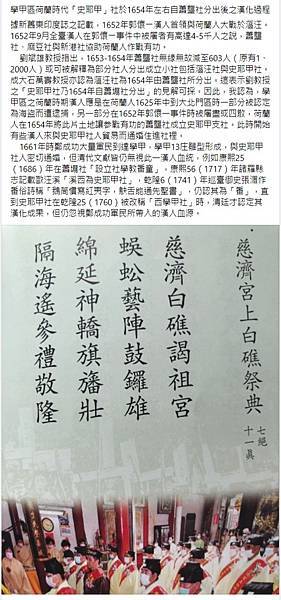 學甲區荷蘭時代「史耶甲」社於1654年在右自蕭壠社分出後之漢化過程
據新舊東印度誌之記載，1652年郭懷一漢人首領與荷蘭人大戰於落汪。
1652年9月全臺漢人在郭懷一事件中被屠者有高達4-5千人之說，蕭壠
社、麻豆社與新港社協助荷蘭人作戰有功。
劉斌雄教授指出，1653-1654年蕭壠社無緣無故減至603人（原有1、
2000人）或可被解釋為部分社人分出成立小社包括落汪社與史耶甲社，
成大石萬壽教授亦認為落汪社為1654年由蕭壠社所分出。遠表示劉教授
之「史耶甲社乃1654年自蕭壠社分出」的見解可採。因此，我認為，學
甲區之荷蘭時期漢人應是在荷蘭人1625年中到大北門區時一部分被認定
為海盜而遭逮捕，另一部分在1652年郭懷一事件時被屠盡或四散，荷蘭
人在1654年將此片土地讓參戰有功的蕭壠社成立史耶甲支社，此時開始
有些漢人來與史耶甲社人貿易而通婚住進社裡。
1661年時鄭成功大量軍民到達學甲，學甲13庄雛型形成，與史耶甲
社人密切通婚，但清代文獻皆仍無視此一漢人血統，例如康熙25
（1686）年在蕭壠社「設立社學教番童」，康熙56（1717）年諸羅縣
志記載歐汪溪「溪西為史耶甲社」，乾隆6（1741）年巡臺御史張湄作
番俗詩稱「鵝筒慣寫紅夷字，鴃舌能通先聖書」，仍認其為「番」，直
到史耶甲社在乾隆25（1760）被改稱「西學甲社」時，清廷才認定其
漢化成果，但仍忽視鄭成功軍民所帶入的漢人血源。
慈濟宮上白礁祭典 七絕 十一真
慈濟白礁謁祖宮
蜈蚣藝陣鼓鑼雄
綿延神轎旗旛壯
隔海遙參禮敬隆